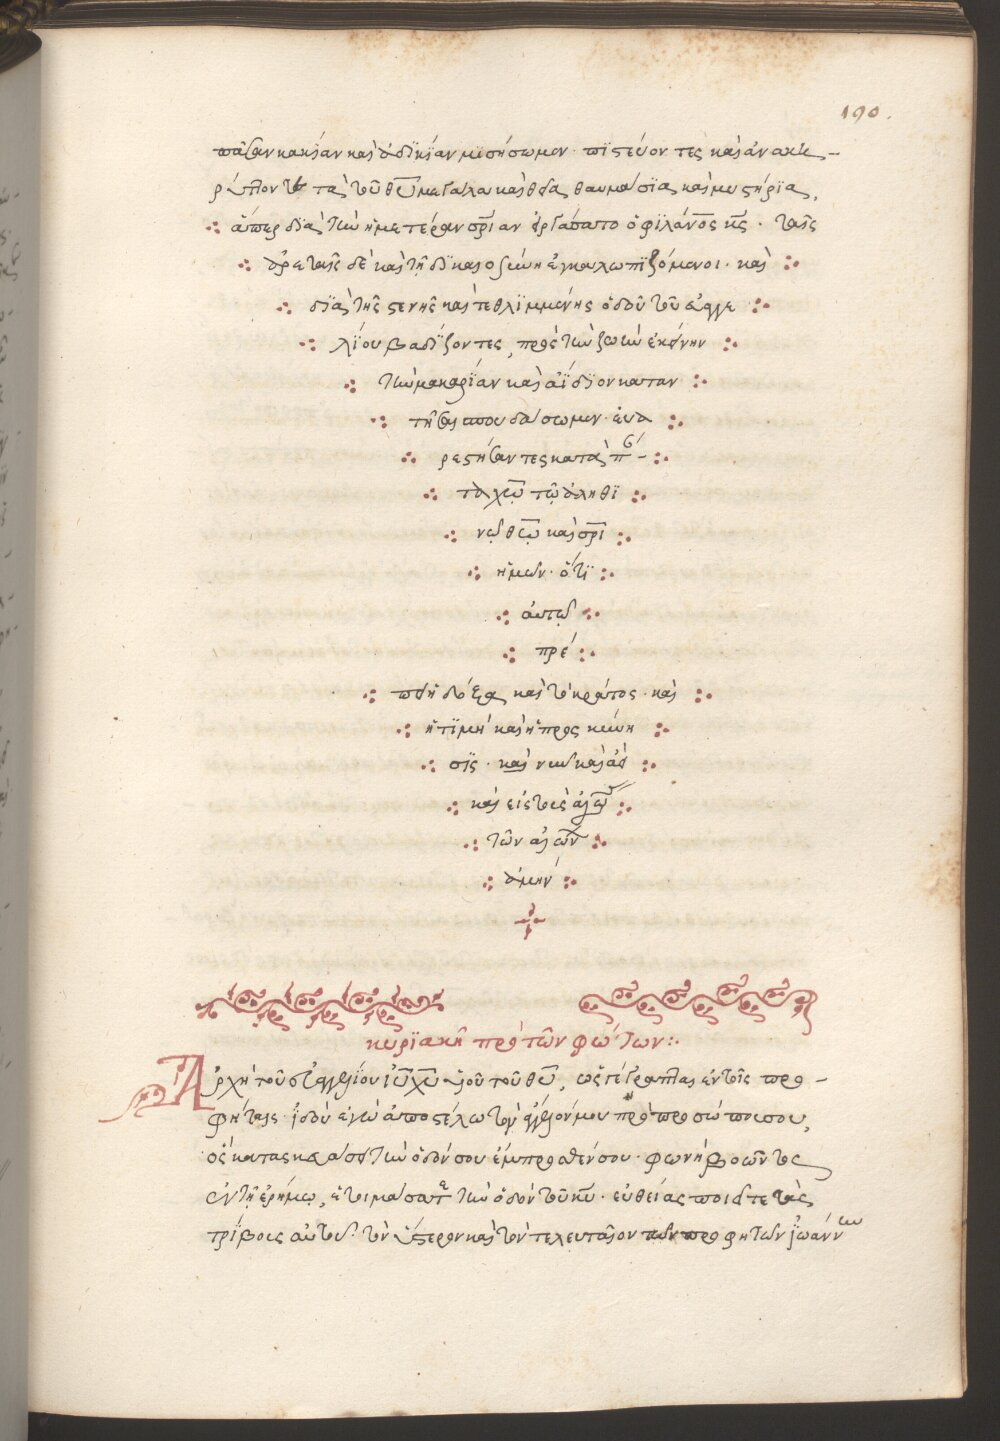 190.
πᾶσαν κακίαν καὶ ἀδικίαν μισήσωμεν. πιστεύοντες καὶ ἀνακη-
ρύττοντες τὰ τοῦ θῡ μεγάλα καὶ θεῖα θαυμάσια καὶ μυστήρια,
ἅπερ διὰ τὴν ἡμετέραν σρ̅ίαν ἐργάσατο ὁ φιλάνο̅ς κς̅. ταῖς
ἀρεταῖς δὲ καὶ τῇ δικαιοσύνῃ ἐγκαλωπιζόμενοι. καὶ
διὰ τῆς στενῆς καὶ τεθλιμμένης ὁδοῦ τοῦ εὐαγγε
λίου βαδίζοντες, πρὸς τὴν ζωὴν ἐκείνην
τὴν μακαρίαν καὶ ἀΐδιον καταν
τῆσαι σπουδάσωμεν. εὐα
ρεστήσαντες κατὰ π-
τα χω̅ τῷ ἀληθι
νῷ θω̅ καὶ σρ̅ι
ἡμῶν. ὅτι
αὐτῷ
πρέ
πει ἡ δόξα καὶ τὸ κράτος. καὶ
ἡ τιμὴ καὶ ἡ προσκύνη
σις. καὶ νῦν καὶ ἀεὶ
καὶ εἰς τοὺς αἰῶ
τῶν αἰών
ἀμήν
κυριακῇ πρὸ τῶν φώτων:.
Ἀρχὴ τοῦ εὐαγγελίου ιῡ χῡ υἱοῦ τοῦ θῡ, ὡς γέγραπται ἐν τοῖς προ-
φήταις. ἰδοὺ ἐγὼ ἀποστέλω τὸν ἄγγελόν μου πρὸ προσώπου σου,
ὃς κατασκευάσει τὴν ὁδόν σου ἔμπροσθέν σου. φωνὴ βοῶντος
ἐν τῇ ἐρήμῳ, ἑτοιμάσατε τὴν ὁδὸν τοῦ κῡ. εὐθείας ποιεῖτε τὰς
τρίβους αὐτοῦ. τὸν ὕστερον καὶ τὸν τελευταῖον τῶν προφητῶν ἰωάννην